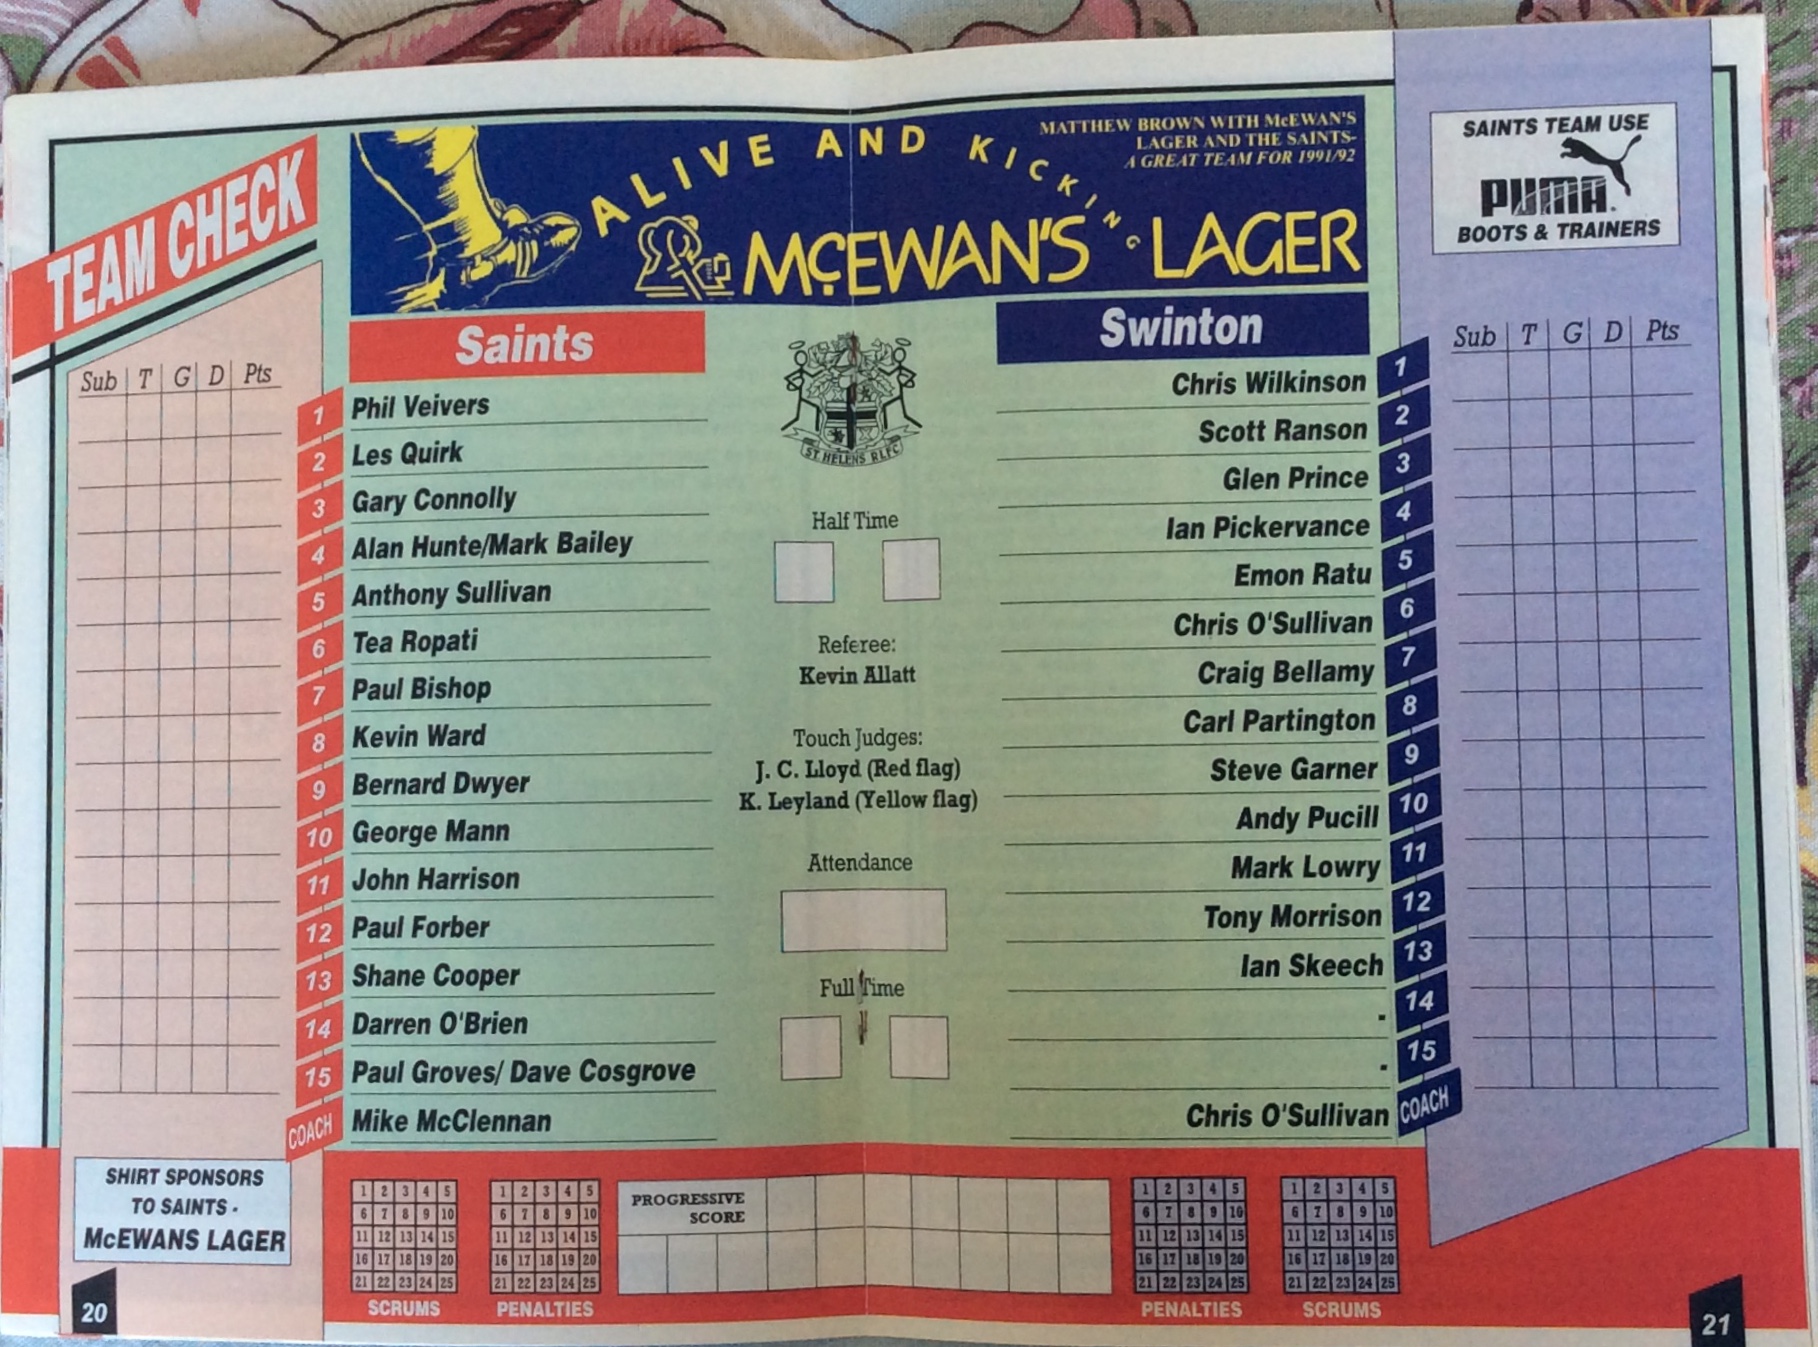 TEAM CHECK
ALIVE AND KICKING
MATTHEW BROWN WITH McEWAN'S
LAGER AND THE SAINTS-
A GREAT TEAM FOR 1991/92
McEWAN'S LAGER
SAINTS TEAM USE
PUMA
BOOTS & TRAINERS
Saints
Sub T G D Pts
1 Phil Veivers
2 Les Quirk
3 Gary Connolly
4 Alan Hunte/Mark Bailey
5 Anthony Sullivan
6 Tea Ropati
7 Paul Bishop
8 Kevin Ward
9 Bernard Dwyer
10 George Mann
11 John Harrison
12 Paul Forber
13 Shane Cooper
14 Darren O'Brien
15 Paul Groves/ Dave Cosgrove
COACH Mike McClennan
ST. HELENS R.L.F.C.
Half Time
Referee:
Kevin Allatt
Touch Judges:
J. C. Lloyd (Red flag)
K. Leyland (Yellow flag)
Attendance
Full Time
Swinton
Sub T G D Pts
Chris Wilkinson 1
Scott Ranson 2
Glen Prince 3
Ian Pickervance 4
Emon Ratu 5
Chris O'Sullivan 6
Craig Bellamy 7
Carl Partington 8
Steve Garner 9
Andy Pucill 10
Mark Lowry 11
Tony Morrison 12
Ian Skeech 13
. 14
. 15
Chris O'Sullivan COACH
SHIRT SPONSORS
TO SAINTS -
McEWANS LAGER
1 2 3 4 5
6 7 8 9 10
11 12 13 14 15
16 17 18 19 20
21 22 23 24 25
SCRUMS
1 2 3 4 5
6 7 8 9 10
11 12 13 14 15
16 17 18 19 20
21 22 23 24 25
PENALTIES
PROGRESSIVE
SCORE
1 2 3 4 5
6 7 8 9 10
11 12 13 14 15
16 17 18 19 20
21 22 23 24 25
PENALTIES
1 2 3 4 5
6 7 8 9 10
11 12 13 14 15
16 17 18 19 20
21 22 23 24 25
SCRUMS
20
21